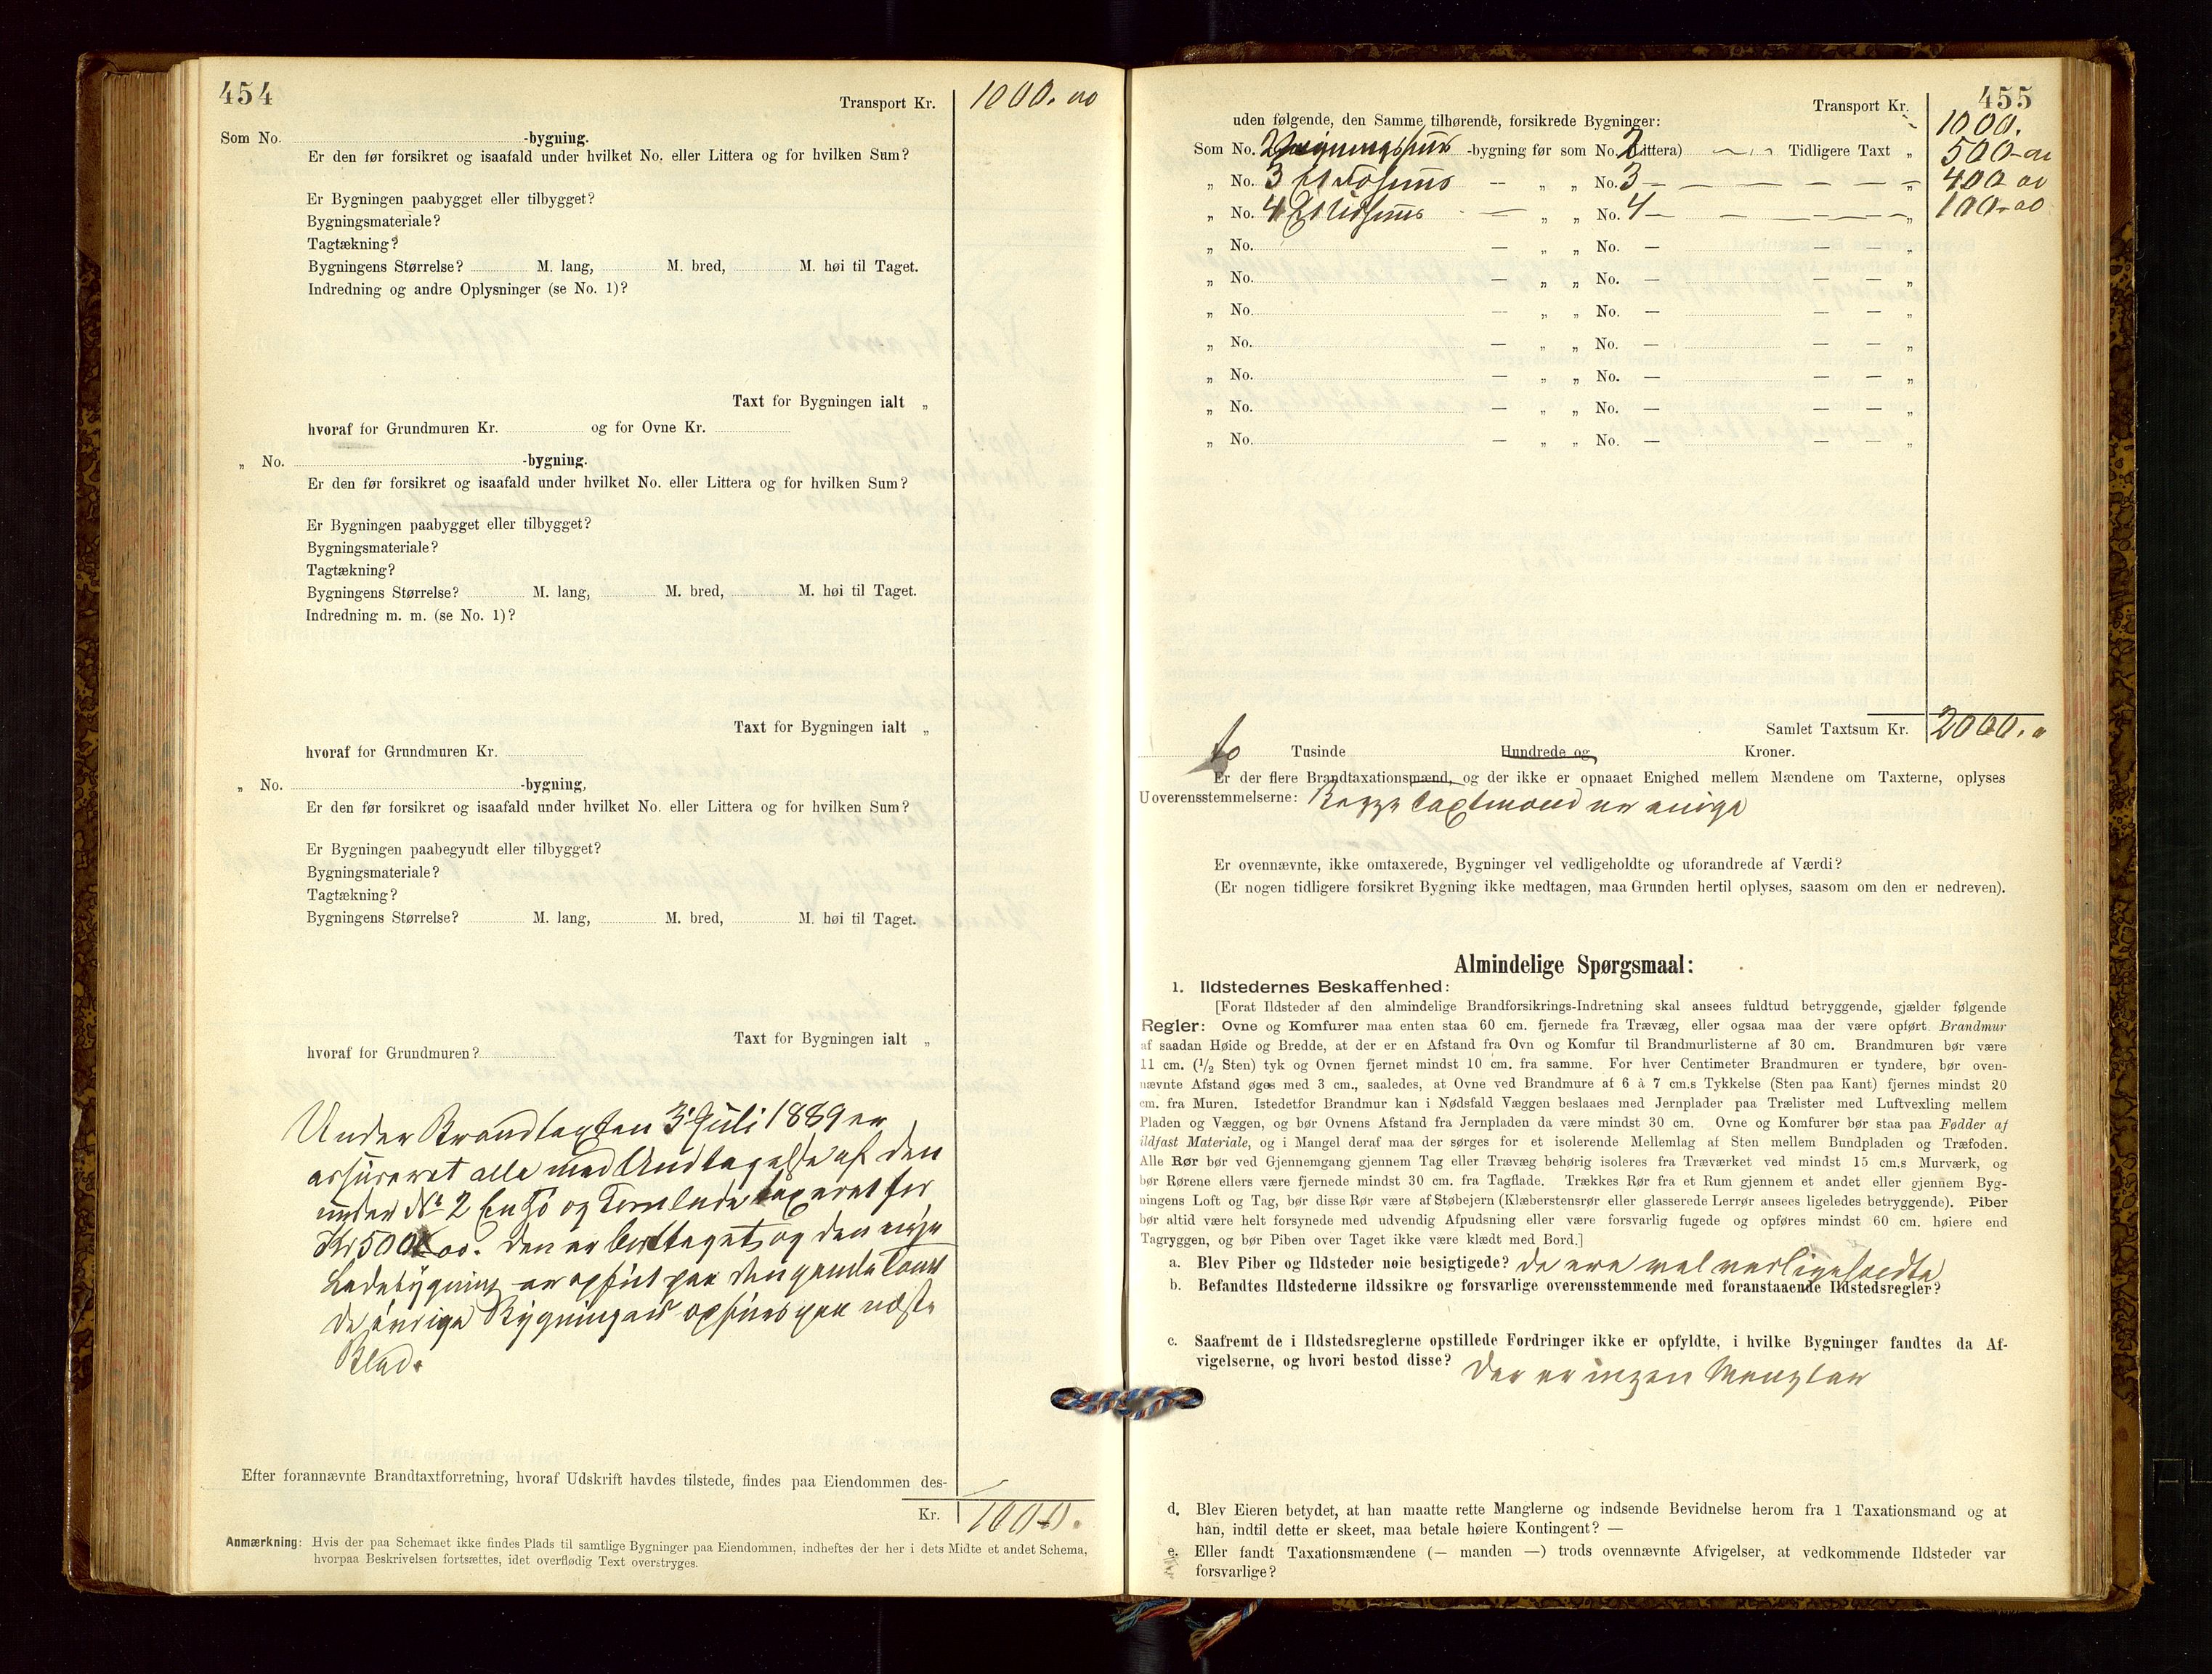 454
Transport Kr. 1000. 00
Som No. -bygning.
Er den før forsikret og isaafald under hvilket No. eller Littera og for hvilken Sum?
Er Bygningen paabygget eller tilbygget?
Bygningsmateriale?
Tagtækning?
Bygningens Størrelse? M. lang, M. bred, M. høi til Taget.
Indredning og andre Oplysninger (se No. 1)?
Taxt for Bygningen ialt „
hvoraf for Grundmuren Kr. og for Ovne Kr.
„ No. -bygning.
Er den før forsikret og isaafald under hvilket No. eller Littera og for hvilken Sum?
Er Bygningen paabygget eller tilbygget?
Bygningsmateriale?
Tagtækning?
Bygningens Størrelse? M. lang, M. bred, M. høi til Taget.
Indredning m. m. (se No. 1)?
Taxt for Bygningen ialt „
hvoraf for Grundmuren Kr.
„ No. -bygning,
Er den før forsikret og isaafald under hvilket No. eller Littera og for hvilken Sum?
Er Bygningen paabegyudt eller tilbygget?
Bygningsmateriale?
Tagtækning?
Bygningens Størrelse? M. lang, M. bred, M. høi til Taget.
Taxt for Bygningen ialt „
hvoraf for Grundmuren?
Under Brandtaxten 3 Juli 1889 er
assureret alle med Undtagelse af den
under No 2 og Kornlade taxeret for
Kr 500 00. den er og den nye
Ladebygning er opført paa den gamle Tomt
De øvrige Bygninger opføres paa næste
Blad.
Efter forannævnte Brandtaxtforretning, hvoraf Udskrift havdes tilstede, findes paa Eiendommen des-
Kr. 1000.
Anmærkning: Hvis der paa Schemaet ikke findes Plads til samtlige Bygninger paa Eiendommen, indheftes der her i dets Midte et andet Schema,
hvorpaa Beskrivelsen fortsættes, idet overflødig Text overstryges.
455
Transport Kr. 1000.
uden følgende, den Samme tilhørende, forsikrede Bygninger:
Som No. 2 -bygning før som No. 2 Littera) Tidligere Taxt „ 500-00
„ No. 3 — „ „ No. 3 — — — „ 400 00
„ No. 4 — „ „ No. 4 — — — „ 100-00
„ No. — „ „ No. — — — „
„ No. — „ „ No. — — — „
„ No. — „ „ No. — — — „
„ No. — „ „ No. — — — „
„ No. — „ „ No. — — — „
„ No. — „ „ No. — — — „
„ No. — „ „ No. — — — „
Samlet Taxtsum Kr. 2000.
to Tusinde Hundrede og Kroner.
Er der flere Brandtaxationsmænd, og der ikke er opnaaet Enighed mellem Mændene om Taxterne, oplyses
Uoverensstemmelserne: Begge Taxtmænd er enige
Er ovennævnte, ikke omtaxerede, Bygninger vel vedligeholdte og uforandrede af Værdi?
(Er nogen tidligere forsikret Bygning ikke medtagen, maa Grunden hertil oplyses, saasom om den er nedreven).
Almindelige Spørgsmaal:
1. Ildstedernes Beskaffenhed:
[Forat Ildsteder af den almindelige Brandforsikrings-Indretning skal ansees fuldtud betryggende, gjælder følgende
Regler: Ovne og Komfurer maa enten staa 60 cm. fjernede fra Trævæg, eller ogsaa maa der være opført Brandmur
af saadan Høide og Bredde, at der er en Afstand fra Ovn og Komfur til Brandmurlisterne af 30 cm. Brandmuren bør være
11 cm. (1/2 Sten) tyk og Ovnen fjernet mindst 10 cm. fra samme. For hver Centimeter Brandmuren er tyndere, bør oven-
nævnte Afstand øges med 3 cm., saaledes, at Ovne ved Brandmure af 6 à 7 cm.s Tykkelse (Sten paa Kant) fjernes mindst 20
cm. fra Muren. Istedetfor Brandmur kan i Nødsfald Væggen beslaaes med Jernplader paa Trælister med Luftvexling mellem
Pladen og Væggen, og bør Ovnens Afstand fra Jernpladen da være mindst 30 cm. Ovne og Komfurer bør staa paa Fødder af
ildfast Materiale, og i Mangel deraf maa der sørges for et isolerende Mellemlag af Sten mellem Bundpladen og Træfoden.
Alle Rør bør ved Gjennemgang gjennem Tag eller Trævæg behørig isoleres fra Træværket ved mindst 15 cm.s Murværk, og
bør Rørene ellers være fjernede mindst 30 cm. fra Tagflade. Trækkes Rør fra et Rum gjennem et andet eller gjennem Byg-
ningens Loft og Tag, bør disse Rør være af Støbejern (Klæberstensrør eller glasserede Lerrør ansees ligeledes betryggende). Piber
bør altid være helt forsynede med udvendig Afpudsning eller være forsvarlig fugede og opføres mindst 60 cm. høiere end
Tagryggen, og bør Piben over Taget ikke være klædt med Bord.]
a. Blev Piber og Ildsteder nøie besigtigede? de ere vel vedligeholdte
b. Befandtes Ildstederne ildssikre og forsvarlige overensstemmende med foranstaaende Ildstedsregler?
c. Saafremt de i Ildstedsreglerne opstillede Fordringer ikke er opfyldte, i hvilke Bygninger fandtes da Af-
vigelserne, og hvori bestod disse? Der er ingen Mangler
d. Blev Eieren betydet, at han maatte rette Manglerne og indsende Bevidnelse herom fra 1 Taxationsmand og at
han, indtil dette er skeet, maa betale høiere Kontingent? —
e. Eller fandt Taxationsmændene (— manden —) trods ovennævnte Afvigelser, at vedkommende Ildsteder var
forsvarlige?